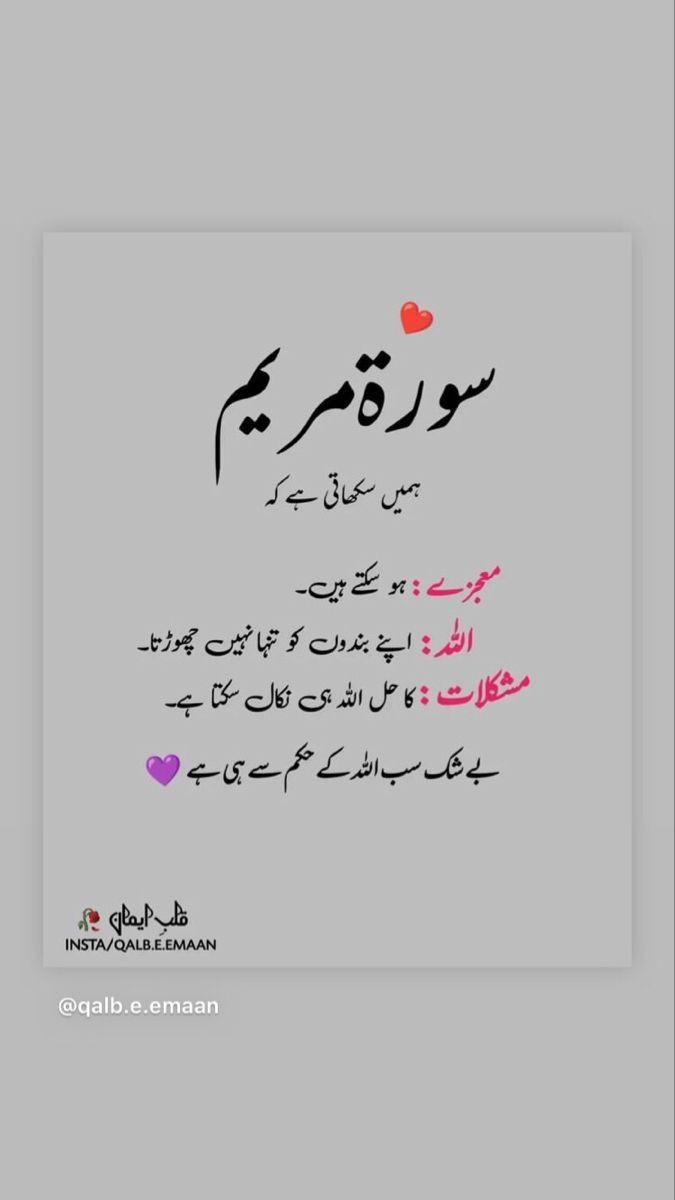 سورۃ مریم
ہمیں سکھاتی ہے کہ
معجزے: ہو سکتے ہیں۔
اللہ: اپنے بندوں کو تنہا نہیں چھوڑتا۔
مشکلات: کا حل اللہ ہی نکال سکتا ہے۔
بے شک سب اللہ کے حکم سے ہی ہے 💜
قلبِ ایمان 🥀
INSTA/QALB.E.EMAAN
@qalb.e.emaan